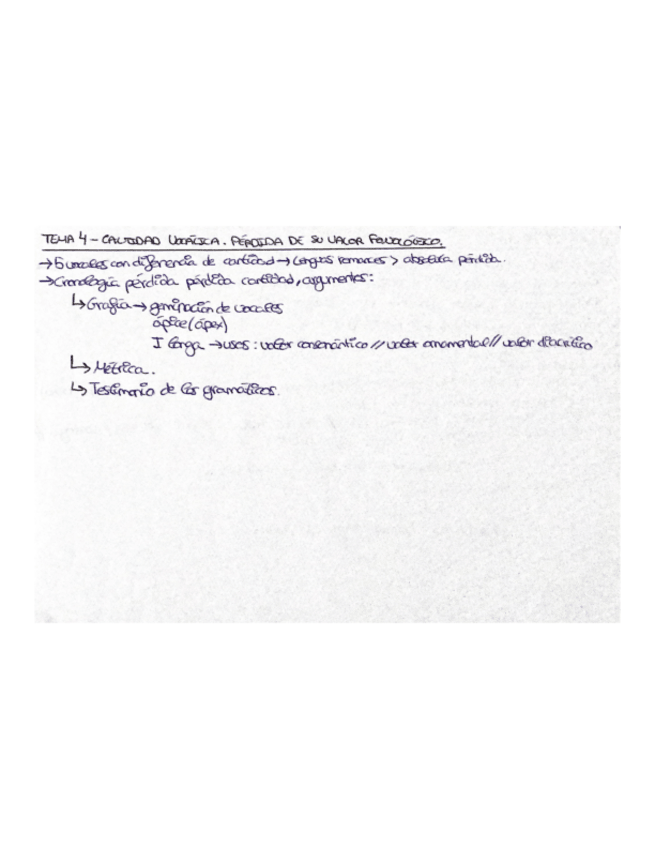 TEMA 4 – CANTIDAD VOCÁLICA. PÉRDIDA DE SU VALOR FONOLÓGICO.
→ 5 vocales con diferencia de cantidad → lenguas romances > absoluta pérdida.
→ Cronología pérdida pérdida cantidad, argumentos:
↳ Grafía → geminación de vocales
ápice (ápex)
I larga → usos: valor consonántico // valor ornamental // valor diacrítico
↳ Métrica.
↳ Testimonio de los gramáticos.